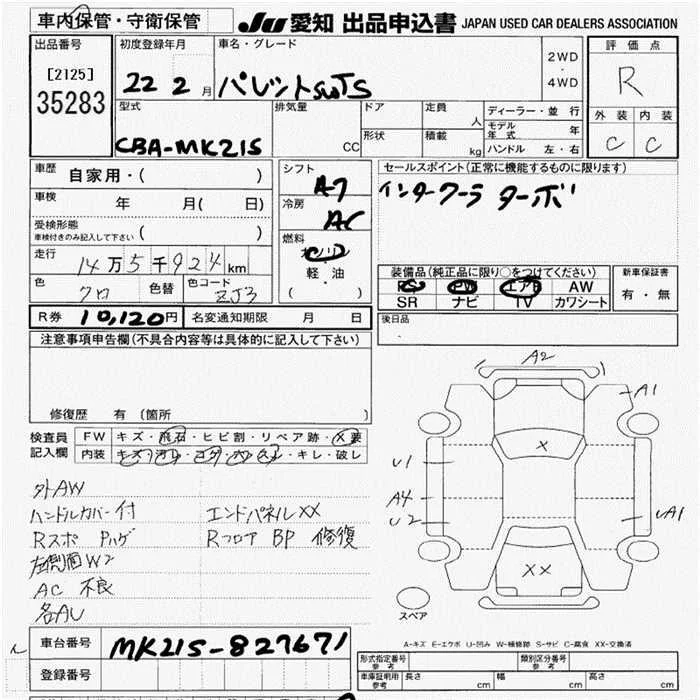 車内保管・守衛保管
JU 愛知 出品申込書 JAPAN USED CAR DEALERS ASSOCIATION
出品番号
[2125]
35283
初度登録年月
22 2 月
車名・グレード
パレットSW TS
2WD
・
4WD
評価点
R
外装 内装
C C
型式
CBA-MK21S
排気量
CC
ドア
形状
定員
人
積載
kg
ディーラー・並 行
モデル年式 年
ハンドル 左・右
車歴
自家用・( )
車検
年 月( 日)
受検形態
車検付きのみ記入して下さい ( )
走行
14万5千924km
色
クロ
色替
色コード
ZJ3
シフト
A-7
冷房
AC
燃料
ガソリン
軽・油
( )
セールスポイント(正常に機能するものに限ります)
インタークーラ ターボ
装備品(純正品に限り○をつけてください)
PS PW エアB AW
SR ナビ TV カワシート
新車保証書
有・無
R券 10,120円
名変通知期限 月 日
後日品
注意事項申告欄(不具合内容等は具体的に記入して下さい)
修復歴 有 (箇所 )
検査員
記入欄
FW キズ・飛石・ヒビ割・リペア跡・X要
内装 キズ・汚れ・コゲ・穴・スレ・キレ・破レ
外AW
ハンドルカバー付 エンドパネルXX
Rスポ Pハゲ Rフロア BP 修復
左側面W2
AC 不良
各AU
A2
A1
X
U1
A4
U2
UA1
XX
スペア
A-キズ E-エクボ U-凹み W-補修跡 S-サビ C-腐食 XX-交換済
車台番号 MK21S-827671
登録番号
形式指定番号
参考
類別区分番号
参考
車庫証明用
参考
長さ cm
幅 cm
高さ cm